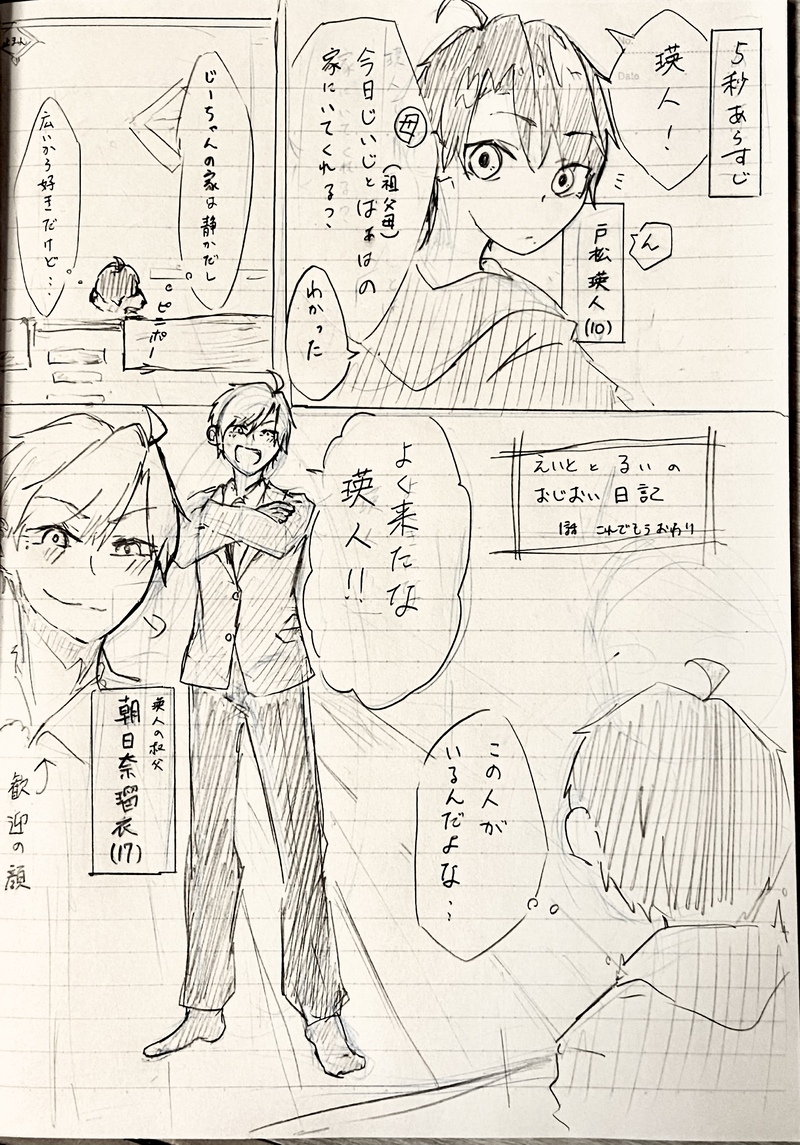 5秒あらすじ
瑛人!
ん
戸松瑛人
(10)
母
今日じいじとばあばの
(祖父母)
家にいてくれるっ、
わかった
じーちゃんの家は静かだし
広いから好きだけど…
ピンポーン
えいととるいの
おじおい日記
1話 これでもうおわり
よく来たな
瑛人!!
この人が
いるんだよな…
瑛人の叔父
朝日奈瑠衣
(17)
歓迎の顔